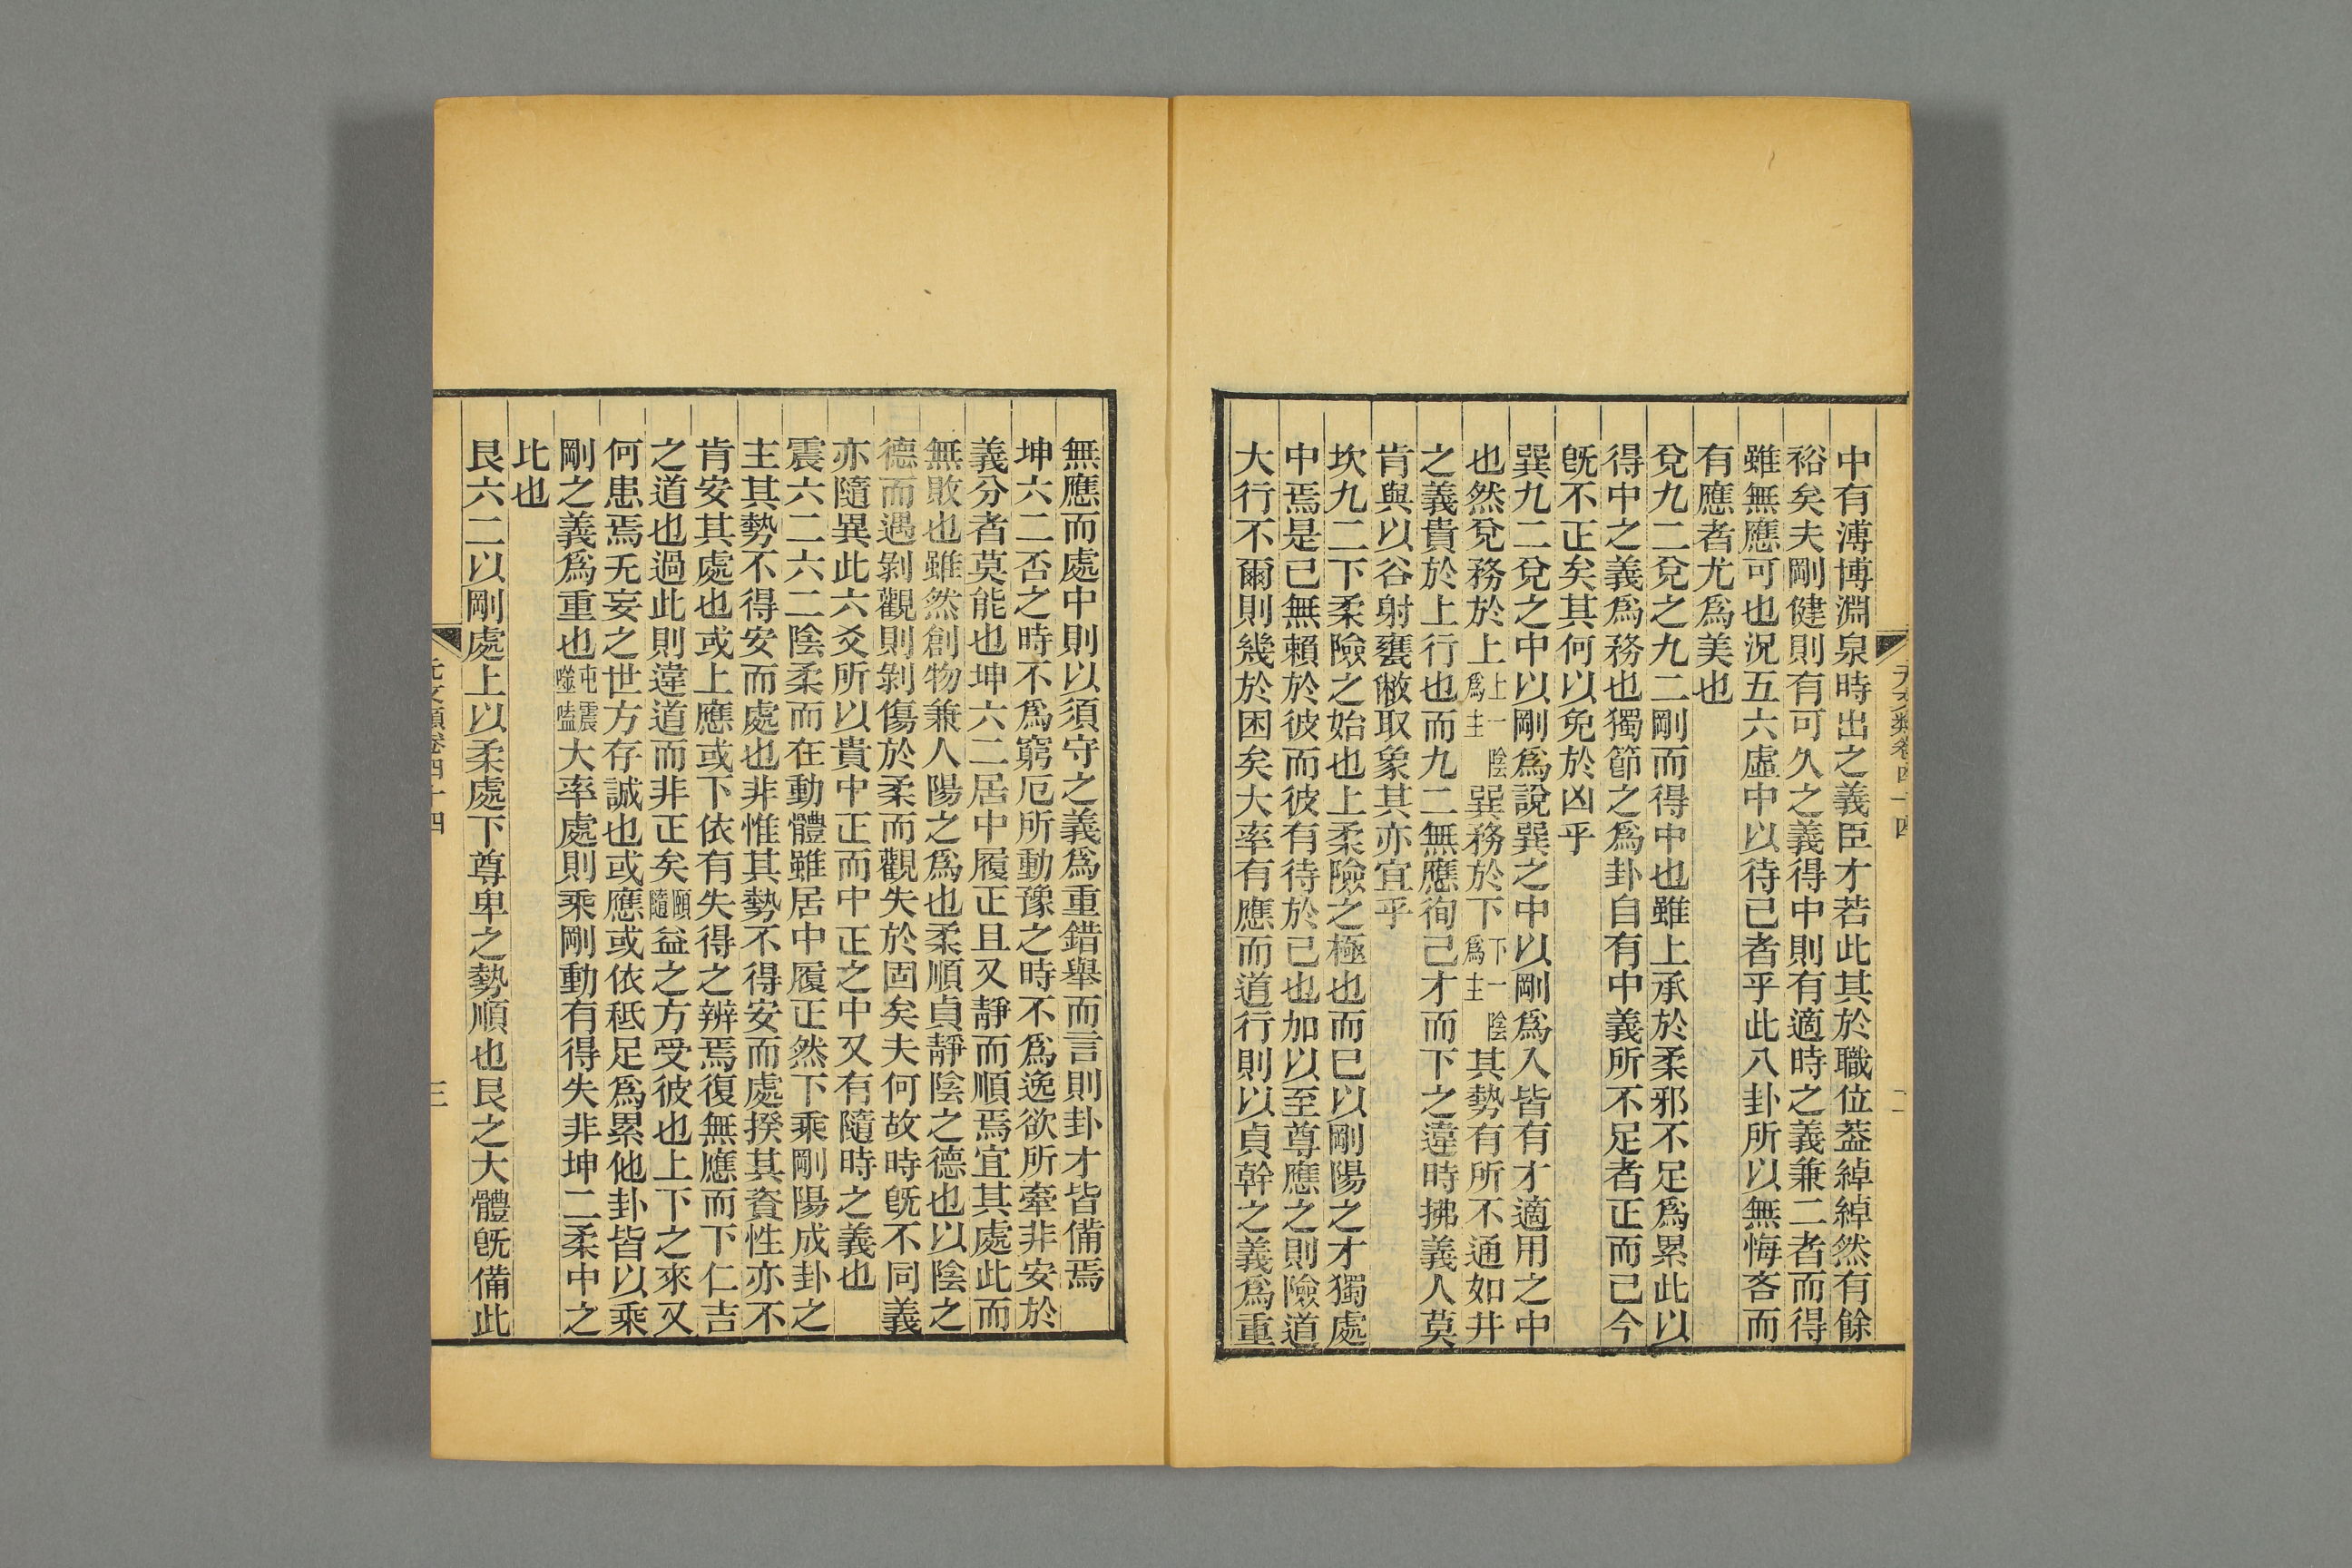 中有溥博淵泉時出之義臣才若此其於職位葢綽綽然有餘
裕矣夫剛健則有可久之義得中則有適時之義兼二者而得
雖無應可也況五六虛中以待已者乎此八卦所以無悔吝而
有應者尤爲美也
兌九二兌之九二剛而得中也雖上承於柔邪不足爲累此以
得中之義爲務也獨節之爲卦自有中義所不足者正而已今
旣不正矣其何以免於凶乎
巽九二兌之中以剛爲說巽之中以剛爲入皆有才適用之中
也然兌務於上上一陰爲主巽務於下下一陰爲主其勢有所不通如井
之義貴於上行也而九二無應徇已才而下之違時拂義人莫
肯與以谷射甕敝取象其亦宜乎
坎九二下柔險之始也上柔險之極也而巳以剛陽之才獨處
中焉是已無賴於彼而彼有待於已也加以至尊應之則險道
大行不爾則幾於困矣大率有應而道行則以貞幹之義爲重
無應而處中則以須守之義爲重錯舉而言則卦才皆備焉
坤六二否之時不爲窮厄所動豫之時不爲逸欲所牽非安於
義分者莫能也坤六二居中履正且又靜而順焉宜其處此而
無敗也雖然創物兼人陽之爲也柔順貞靜陰之德也以陰之
德而遇剝觀則剝傷於柔而觀失於固矣夫何故時旣不同義
亦隨異此六爻所以貴中正而中正之中又有隨時之義也
震六二六二陰柔而在動體雖居中履正然下乘剛陽成卦之
主其勢不得安而處也非惟其勢不得安而處揆其資性亦不
肯安其處也或上應或下依有失得之辨焉復無應而下仁吉
之道也過此則違道而非正矣頤隨益之方受彼也上下之來又
何患焉无妄之世方存誠也或應或依秪足爲累他卦皆以乘
剛之義爲重也屯震噬嗑大率處則乘剛動有得失非坤二柔中之
比也
艮六二以剛處上以柔處下尊卑之勢順也艮之大體旣備此
元文類卷四十四
三